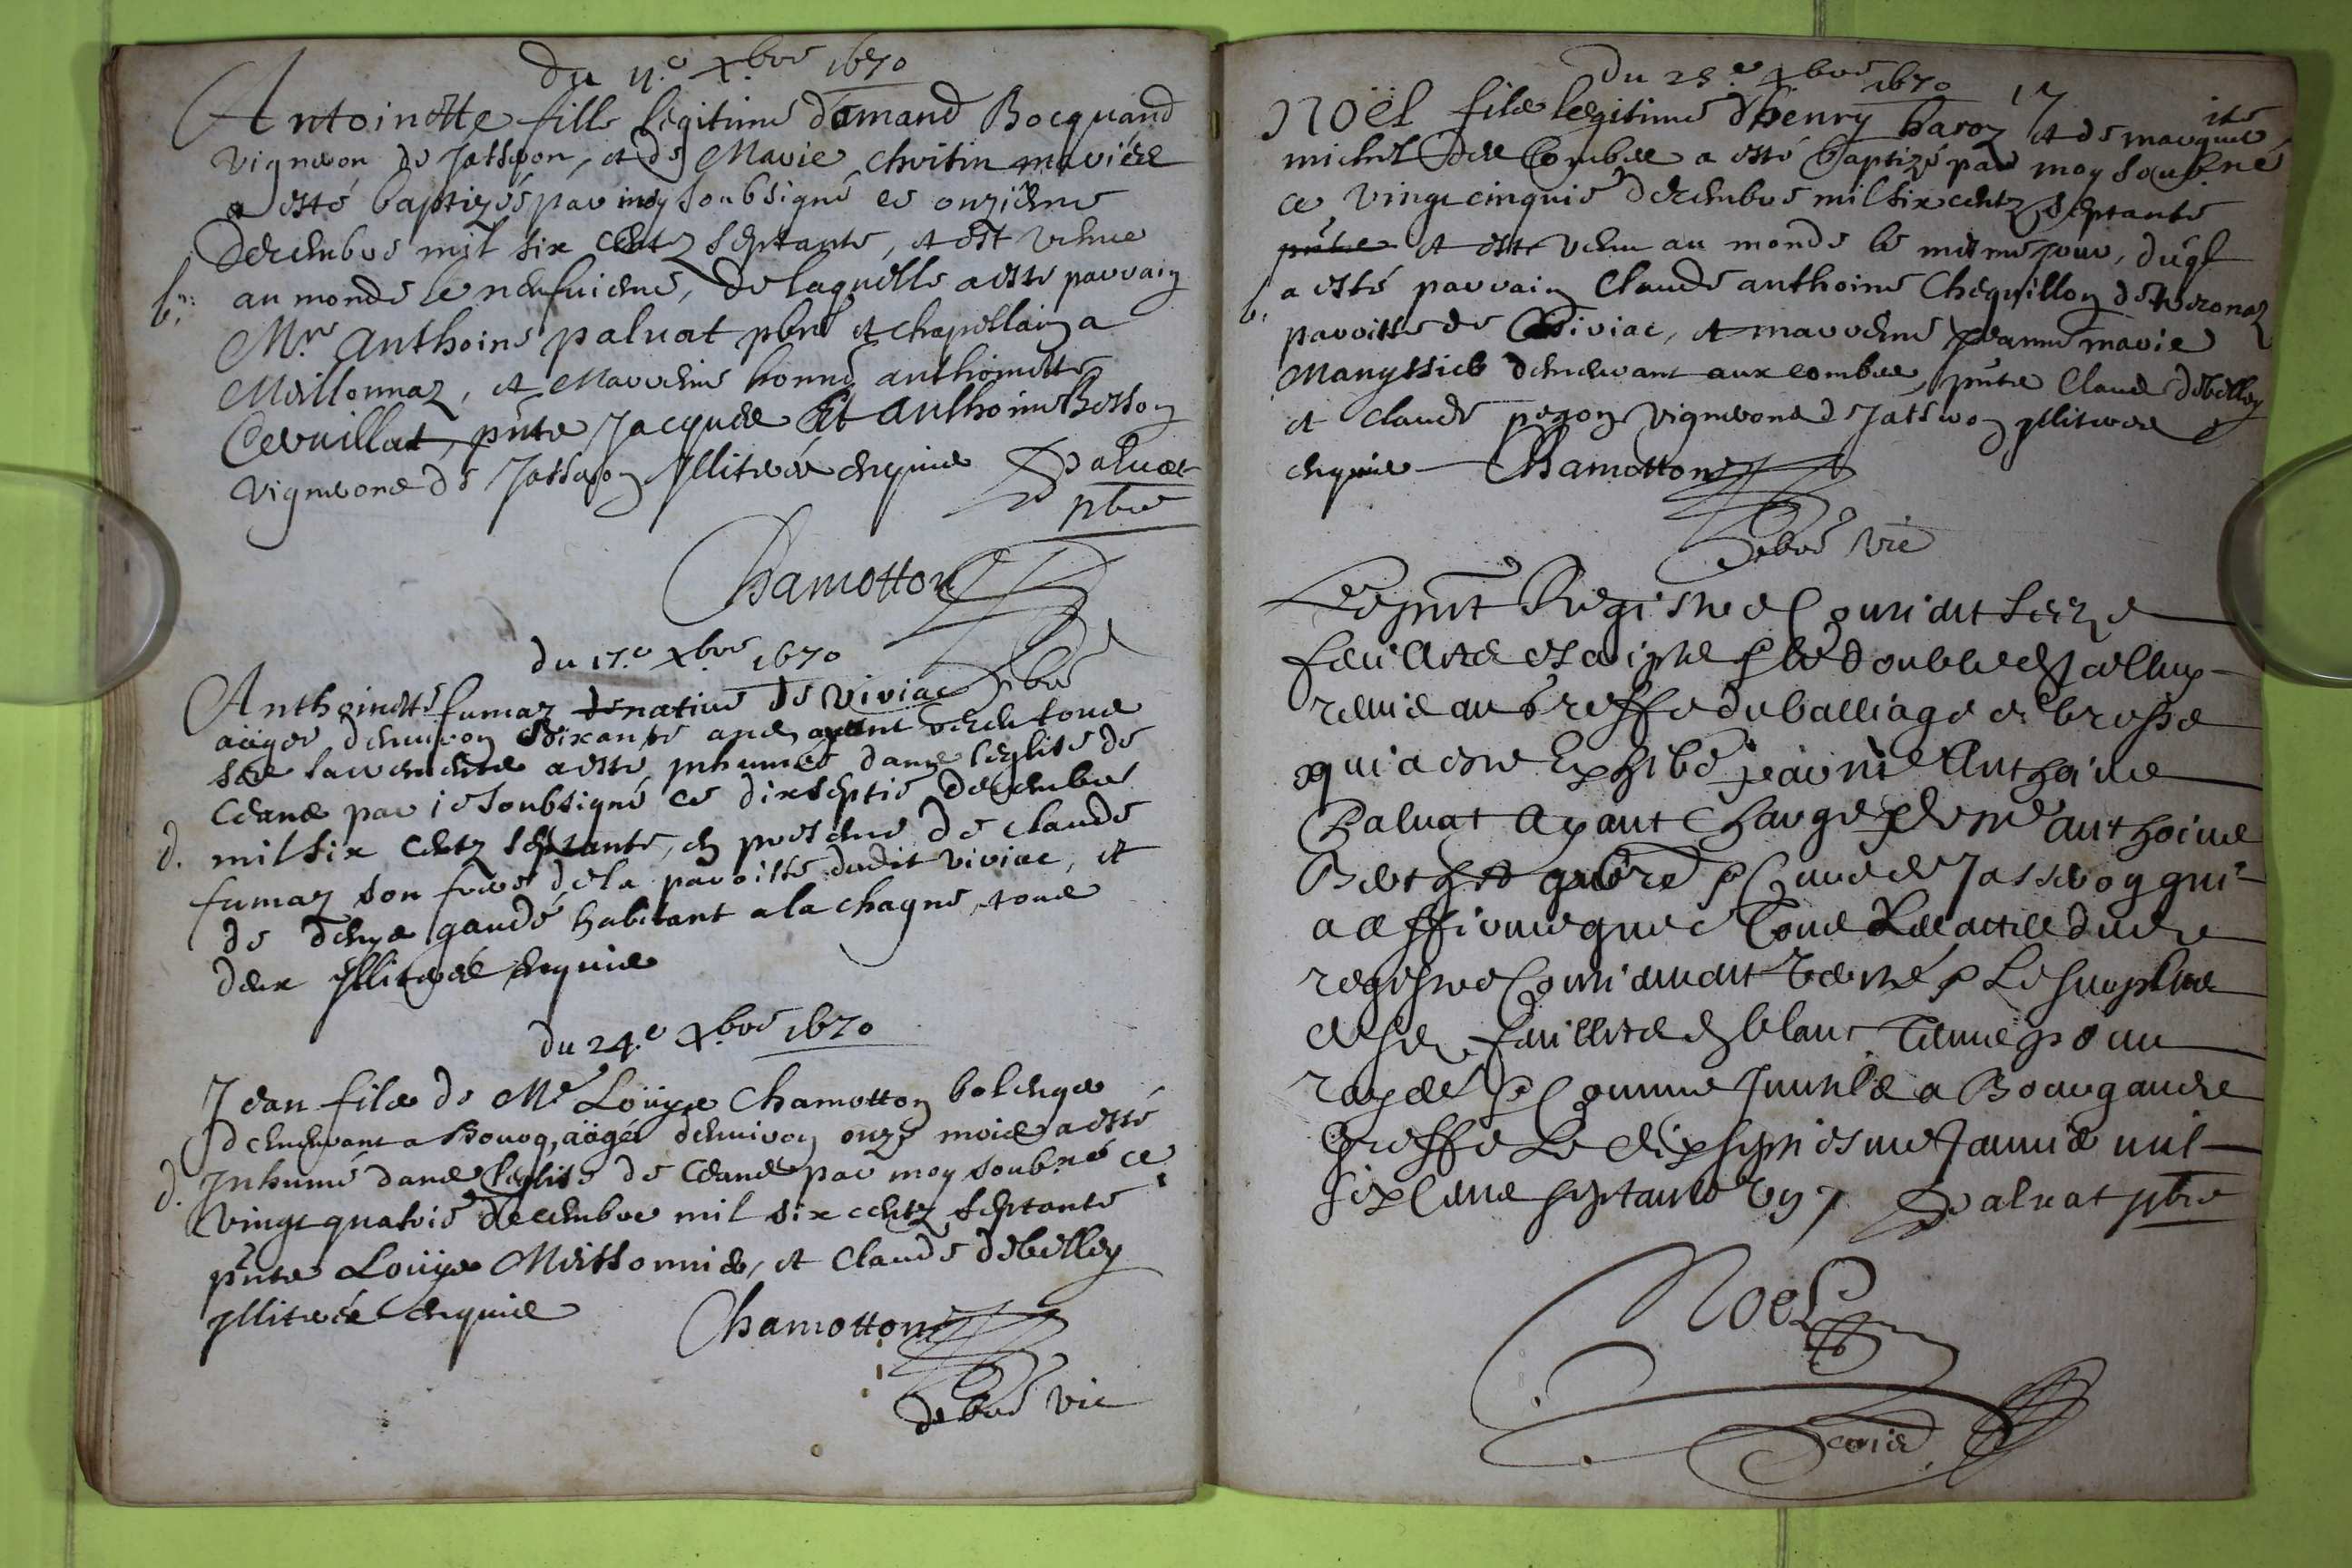 du 11.e xbre 1670
Antoinette fille legitime d'Emand Bocquand
vigneron de Jasseron, et de Marie Chritin mariés
a esté baptizés par moy soubsigné ce onzieme
Decembre mil six centz septante, et est venue
b.
au monde le neufuieme, de laquelle a esté parrain
Mre Anthoine paluat pbre et chapellain a
Meillonnaz, et Marreine honne anthoinette
Cevuillat, pnts Jacques et Anthoine Besson
vignerons de Jasseron illiterés enquis Paluat
pbre
Chamotton
du 17.e xbre 1670
Anthoinette fumaz de native de viviac
aägée denviron soixante ans, ayant receu tous
ses sacrements a esté inhumée dans l'eglise de
Ceans par je soubsigné ce dixseptie Decembre
d. mil six centz septante, en presence de claude
fumaz son frere de la paroisse dudit viviac, et
de denys gaudé habitant a la chagne, tous
deux illiterés enquis
du 24.e xbre 1670
Jean fils de Me Loüys Chamotton bolenger
demeurant a Bourg, aägé denviron onze mois a esté
d. Inhumé dans l'eglise de Ceans par moy soubné ce
vingt quatrie Decembre mil six centz septante
pnts Loüys Meissonnier, et Claude debelley
illiterés enquis
Chamotton
vic
du 25.e xbre 1670
17
Noël fils legitime d'henry baroz et de marguerite
michel des Combes a esté baptizé par moy soubné
ce vingt cinquie decembre mil six centz septante
pnts et est venu au monde le mesme jour, duql
b.
a esté parrain Claude anthoine Chequillon de
paroisse de Civiac, et marreine Jeanne marie
Manyssier demeurant aux combes, pnts Claude debelley
et Claude pegon vignerons de Jasseron illiterés
enquis Chamotton
vic
Le pnt Registre Contient seize
feulliets escripts le double est celluy
remis au Greffe du balliage de bresse
qui a esté Exhibé par me Anthoine
Paluat ayant charge de me anthoine
curé de Jasseron qui
a affirmé que tous les actes dudit
registre Contiennent verité le surplus
desd feulliets en blanc
rayés Comme Inutils a Bourg audit
Greffe Le dix septiesme Janvier mil
six cens septante Paluat pbre
Noel